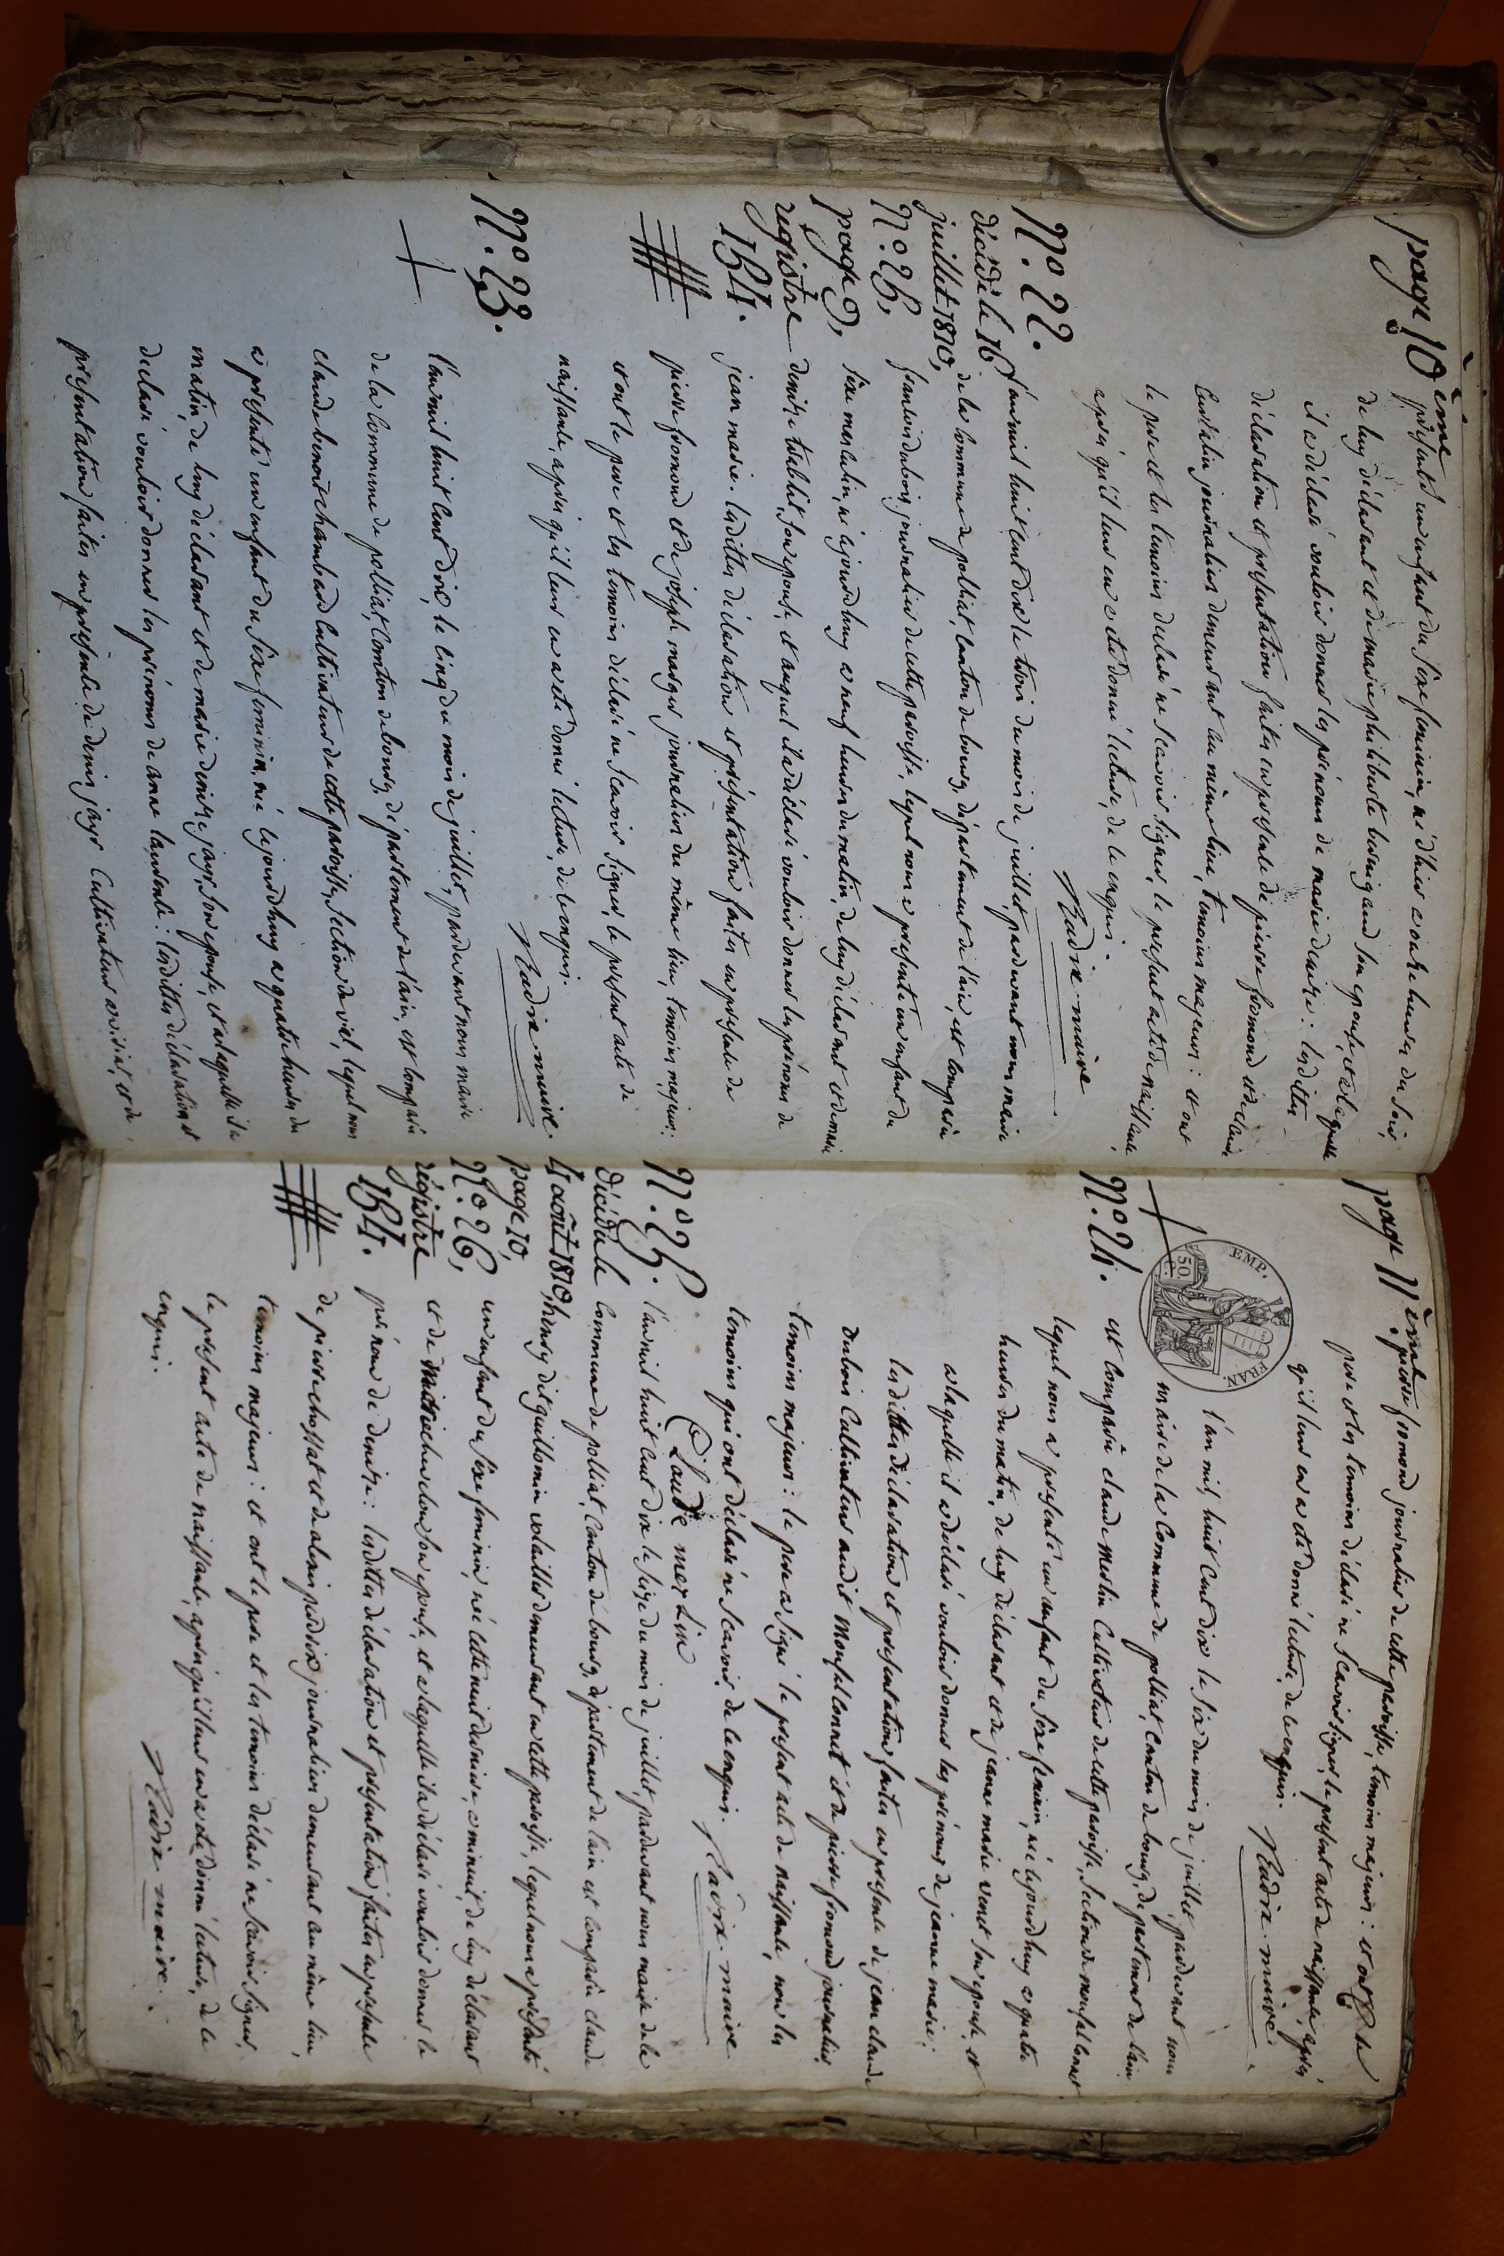 page 10ème
présenté un enfant du sexe feminin, né d'hier a onze heures du soir,
de luy déclarant et de marie philiberte su epouse, et a laquelle
il a déclaré vouloir donner les prénoms de marie denise : lesdittes
déclaration et presentation faites en presence de pierre fromond et de claude
journalier demeurant au même lieu, temoins majeurs : et ont
le pere et les temoins déclaré ne scavoir signer, le present acte de naissance,
apres qu'il leur en a été donné lecture, de ce enquis.
Nadix maire
N.o 22.
décédé le 16
juillet 1810,
N.o 25,
page 9,
registre
1er.
l'an mil huit cent dix le trois du mois de juillet, pardevant nous maire
de la commune de polliat, canton de bourg, département de l'ain, est comparu
francois dubois journalier de cette paroisse, lequel nous a presenté un enfant du
sexe masculin, né ajourdhuy a neuf heures du matin, de luy déclarant et de marie
denise son epouse, et auquel il a déclaré vouloir donner les prénoms de
jean marie. lesdittes déclaration et présentation faites en presence de
pierre fromond et de joseph journalier du même lieu, temoins majeurs :
et ont le pere et les temoins déclaré ne scavoir signer, le present acte de
naissance, apres qu'il leur en a été donné lecture, de ce enquis.
Nadix maire.
N.o 23.
l'an mil huit cent dix, le cinq du mois de juillet, pardevant nous maire
de la commune de polliat, canton de bourg, département de l'ain, est comparu
claude benoit chambard cultivateur de cette paroisse, section de lequel nous
a présenté un enfant du sexe feminin, née le jourdhuy a quatre heures du
matin, de luy déclarant et de marie denise jayr, son epouse, et a laquelle il a
déclaré vouloir donner les prénoms de anne laurence : lesdittes déclaration et
présentation faites en présence de denis jayr cultivateur et de
page 11ème
pierre fromond journalier de cette paroisse, temoins majeurs : et ont le
pere et les temoins déclaré ne scavoir signer, le present acte de naissance, apres
qu'il leur en a été donné lecture, de ce enquis.
Nadix maire.
EMP. FRAN.
50 C.
N.o 24.
l'an mil, huit cent dix le six du mois de juillet, pardevant nous
maire de la commune de polliat, canton de bourg, département de l'ain
est comparu claude merlin cultivateur de cette paroisse, section de monfalconnet
lequel nous a présenté un enfant du sexe feminin, né lejourdhuy a quatre
heures du matin, de luy déclarant et de jeanne marie venet son epouse, et
a laquelle il a déclaré vouloir donner les prénoms de jeanne marie :
les dittes déclaration et presentation faites en presence de jean claude
dubois cultivateur audit Monfalconnet et de pierre fromond journalier,
temoins majeurs : le pere a signé le present acte de naissance, non les
temoins qui ont déclaré ne scavoir, de ce enquis.
Claude merlin
Nadix. maire
N.o 25.
décédé le
4 août 1810,
page 10,
N.o 26,
registre
1er.
l'an mil huit cent dix le seize du mois de juillet, pardevant nous maire de la
commune de polliat, canton de bourg, département de l'ain est comparu claude
henry dit guillemin demeurant a cette paroisse, lequel nous a présenté
un enfant du sexe feminin, née cette nuit derniere, a minuit, de luy déclarant
et de son epouse, et a laquelle il a déclaré vouloir donner le
prénom de denise : lesdittes déclaration et présentation faites en presence
de pierre chossat et de perdrix journaliers demeurant au même lieu,
temoins majeurs : et ont le pere et les temoins déclaré ne scavoir signer,
le present acte de naissance, apres qu'il leur en a été donné lecture, de ce
enquis.
Nadix maire.